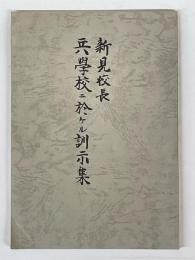 新見校長
兵學校ニ於ケル訓示集